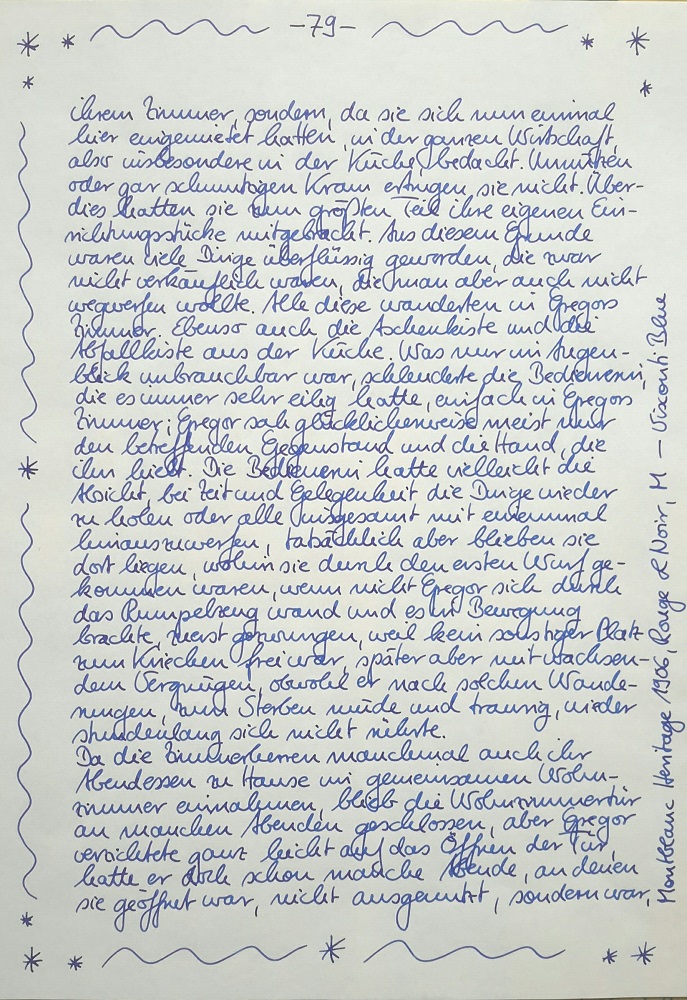 -79-
ihrem Zimmer, sondern, da sie sich nun einmal
hier eingemietet hatten, in der ganzen Wirtschaft,
also insbesondere in der Küche, bedacht. Unnützen
oder gar schmutzigen Kram ertrugen sie nicht. Über-
dies hatten sie zum größten Teil ihre eigenen Ein-
richtungsstücke mitgebracht. Aus diesem Grunde
waren viele Dinge überflüssig geworden, die zwar
nicht verkäuflich waren, die man aber auch nicht
wegwerfen wollte. Alle diese wanderten in Gregors
Zimmer. Ebenso auch die Aschenkiste und die
Abfallkiste aus der Küche. Was nur im Augen-
blick unbrauchbar war, schleuderte die Bedienerin,
die es immer sehr eilig hatte, einfach in Gregors
Zimmer; Gregor sah glücklicherweise meist nur
den betreffenden Gegenstand und die Hand, die
ihn hielt. Die Bedienerin hatte vielleicht die
Absicht, bei Zeit und Gelegenheit die Dinge wieder
zu holen oder alle insgesamt mit einemmal
hinauszuwerfen, tatsächlich aber blieben sie
dort liegen, wohin sie durch den ersten Wurf ge-
kommen waren, wenn nicht Gregor sich durch
das Rumpelzeug wand und es in Bewegung
brachte, zuerst gezwungen, weil kein sonstiger Platz
zum Kriechen frei war, später aber mit wachsen-
dem Vergnügen, obwohl er nach solchen Wande-
rungen, zum Sterben müde und traurig, wieder
stundenlang sich nicht rührte.
Da die Zimmerherren manchmal auch ihr
Abendessen zu Hause im gemeinsamen Wohn-
zimmer einnahmen, blieb die Wohnzimmertür
an manchen Abenden geschlossen, aber Gregor
verzichtete ganz leicht auf das Öffnen der Tür,
hatte er doch schon manche Abende, an denen
sie geöffnet war, nicht ausgenützt, sondern war,
Montblanc Heritage 1906, Rouge & Noir, M — Visconti Blue